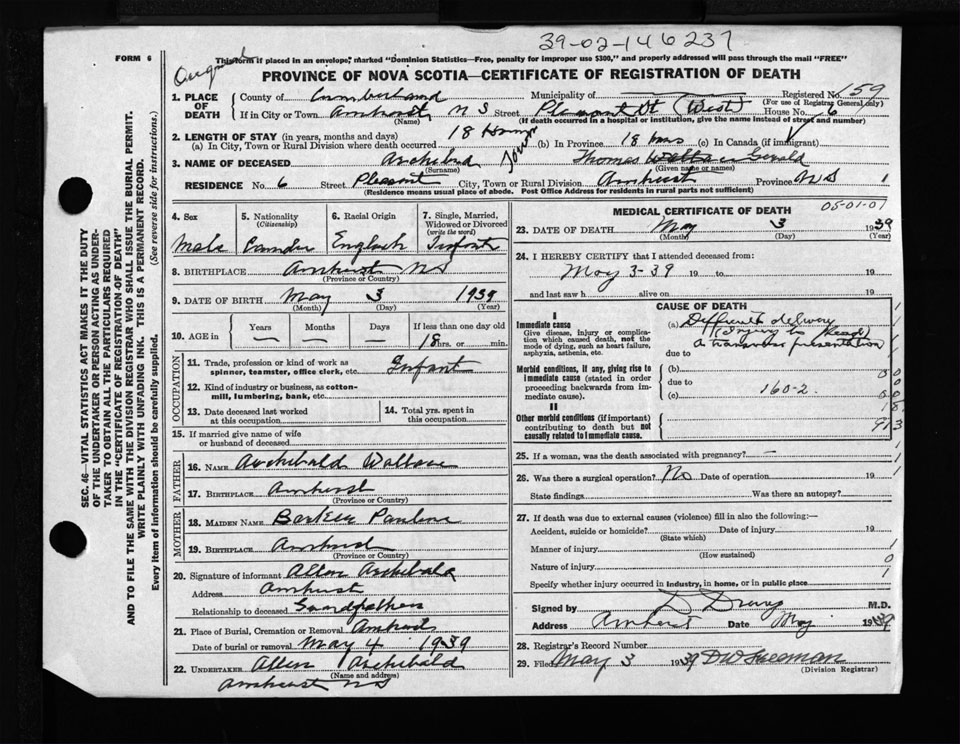 39-02-146237
FORM 6
This form if placed in an envelope, marked "Dominion Statistics—Free, penalty for improper use $300," and properly addressed will pass through the mail "FREE"
PROVINCE OF NOVA SCOTIA—CERTIFICATE OF REGISTRATION OF DEATH
1. PLACE OF DEATH
County of Cumberland Municipality of Registered No. 59
(For use of Registrar General only)
If in City or Town Amherst N S Street Pleasant St (West) House No. 6
(Name) (If death occurred in a hospital or institution, give the name instead of street and number)
2. LENGTH OF STAY (in years, months and days)
(a) In City, Town or Rural Division where death occurred 18 Hours (b) In Province 18 hrs (c) In Canada (if immigrant)
3. NAME OF DECEASED Archibald Thomas Gerald
(Surname) (Given name or names)
RESIDENCE No. 6 Street Pleasant City, Town or Rural Division Amherst Province N S 1
(Residence means usual place of abode. Post Office Address for residents in rural parts not sufficient)
4. Sex Male
5. Nationality (Citizenship) Canadin
6. Racial Origin English
7. Single, Married, Widowed or Divorced (write the word) Infant
8. BIRTHPLACE Amherst N S
(Province or Country)
9. DATE OF BIRTH May 3 1939
(Month) (Day) (Year)
10. AGE in Years Months Days If less than one day old
18 hrs. or min.
OCCUPATION
11. Trade, profession or kind of work as spinner, teamster, office clerk, etc. Infant
12. Kind of industry or business, as cotton-mill, lumbering, bank, etc.
13. Date deceased last worked at this occupation
14. Total yrs. spent in this occupation
15. If married give name of wife or husband of deceased
FATHER
16. NAME Archibald Wallace
17. BIRTHPLACE Amherst
(Province or Country)
MOTHER
18. MAIDEN NAME Pauline
19. BIRTHPLACE Amherst
(Province or Country)
20. Signature of informant Allen Archibald
Address Amherst
Relationship to deceased Grandfather
21. Place of Burial, Cremation or Removal Amherst
Date of burial or removal May 4 1939
22. UNDERTAKER Allen Archibald
(Name and address)
Amherst N S
MEDICAL CERTIFICATE OF DEATH 05-01-07
23. DATE OF DEATH May 3 1939
(Month) (Day) (Year)
24. I HEREBY CERTIFY that I attended deceased from:
May 3-39 19 to 19
and last saw h alive on 19
CAUSE OF DEATH
I
Immediate cause
Give disease, injury or complication which caused death, not the mode of dying, such as heart failure, asphyxia, asthenia, etc.
(a) Difficult delivery
(Owing to Head)
a transverse presentation
due to
Morbid conditions, if any, giving rise to immediate cause (stated in order proceeding backwards from immediate cause).
(b)
due to
(c) 160-2.
II
Other morbid conditions (if important) contributing to death but not causally related to immediate cause.
913
25. If a woman, was the death associated with pregnancy? —
26. Was there a surgical operation? No Date of operation 19
State findings Was there an autopsy?
27. If death was due to external causes (violence) fill in also the following:—
Accident, suicide or homicide? Date of injury 19
(State which)
Manner of injury
(How sustained)
Nature of injury
Specify whether injury occurred in industry, in home, or in public place
Signed by M.D.
Address Amherst Date May 1939
28. Registrar's Record Number
29. Filed May 3 1939 DW Freeman
(Division Registrar)
SEC. 46—VITAL STATISTICS ACT MAKES IT THE DUTY
OF THE UNDERTAKER OR PERSON ACTING AS UNDERTAKER TO OBTAIN ALL THE PARTICULARS REQUIRED
IN THE "CERTIFICATE OF REGISTRATION OF DEATH"
AND TO FILE THE SAME WITH THE DIVISION REGISTRAR WHO SHALL ISSUE THE BURIAL PERMIT.
WRITE PLAINLY WITH UNFADING INK. THIS IS A PERMANENT RECORD.
Every item of information should be carefully supplied. (See reverse side for instructions.)